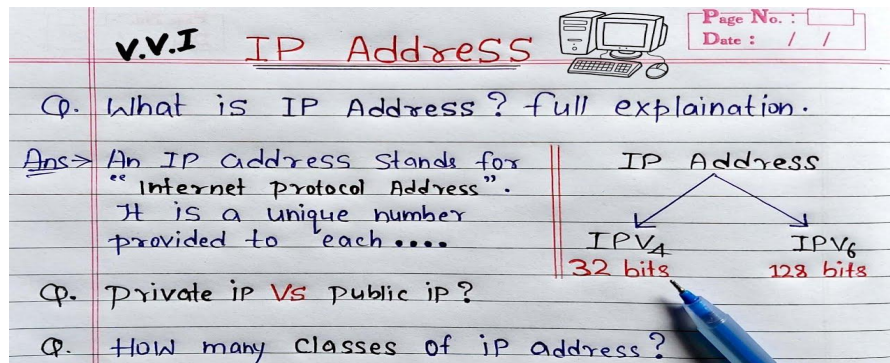 Page No. :
Date : / /
V.V.I IP Address
Q. What is IP Address? full explaination.
Ans→ An IP address stands for
"Internet protocol Address".
It is a unique number
provided to each ....
IP Address
IPV4 IPV6
32 bits 128 bits
Q. Private ip Vs Public ip?
Q. How many classes of ip address?